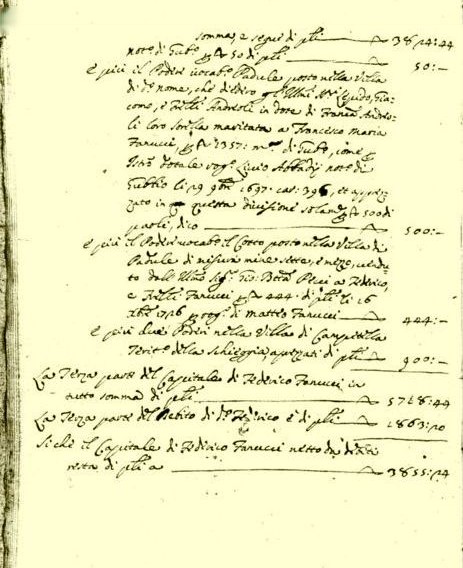 somma, e segue di pli — 3814:44
noto di Gubo p 50 di pli — 50:—
E più il Podere vocabo Padule posto nella Villa
di do nome, che diedero gl'Illmi Guido, Gia-
como, e Flli Andreoli in dote di Franca Andreo-
li loro sorella maritata a Francesco Maria
Fanucci, 1357: di Gubo, come p
Istro dotale rogo Livio Abbadij noto di
Gubbio li 29 9bre 1697 car: 396, et apprez-
zato in questa divisione solame 500 di
paoli, dico — 500:—
E più il Podere vocabo il Cotto posto nella Villa di
Padule di misura mine sette, e meze, vendu-
to dall'Illmo Sigr Gio: Btta Pecci a Federico,
e Flli Fanucci p 444 di pli li 16
xbre 1716 rog: di Matteo Fanucci — 444:—
E più due Poderi nella Villa di Campitella
Territo della Schieggia apprezati di pli — 900:—
La Terza parte del Capitale di Federico Fanucci in
tutto somma di pli — 5718:44
La Terza parte del Debito di do Federico è di pli — 1863:20
Sichè il Capitale di Federico Fanucci netto da debiti
resta di pli a — 3855:24